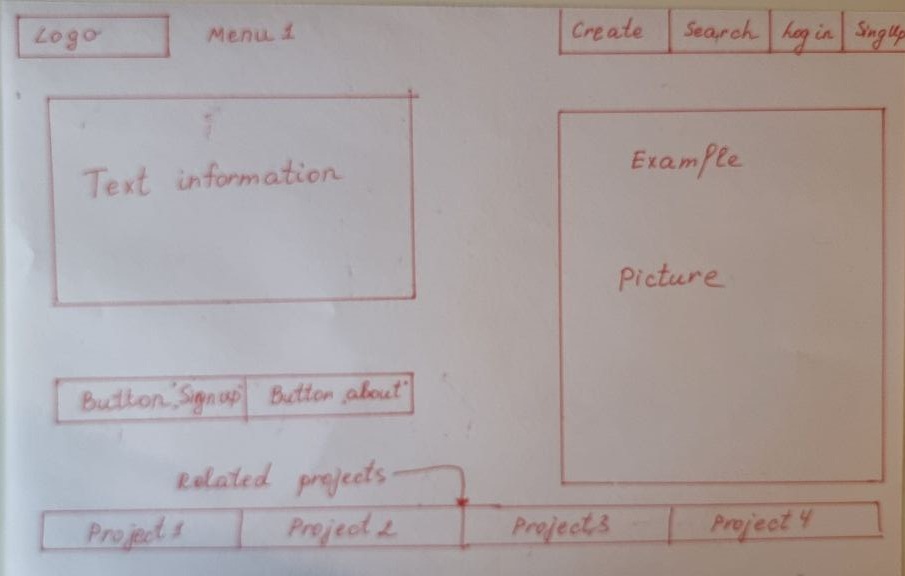 Logo Menu 1 Create Search Log in Sing Up
Text information
Example
Picture
Button "Sign up" Button "about"
Related projects
Project 1 Project 2 Project 3 Project 4